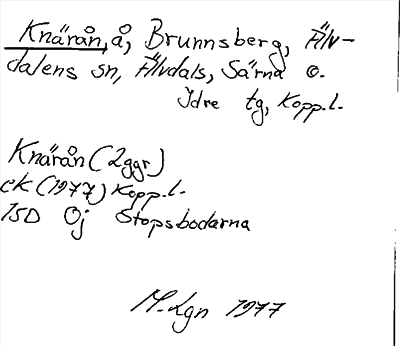 Knärån, å, Brunnsberg, Älv-
dalens sn, Älvdals, Särna o.
Idre tg, Kopp.l.
Knärån (2ggr)
ek (1977) Kopp.l.
15D 0j Stopsbodarna
M.Lgn 1977